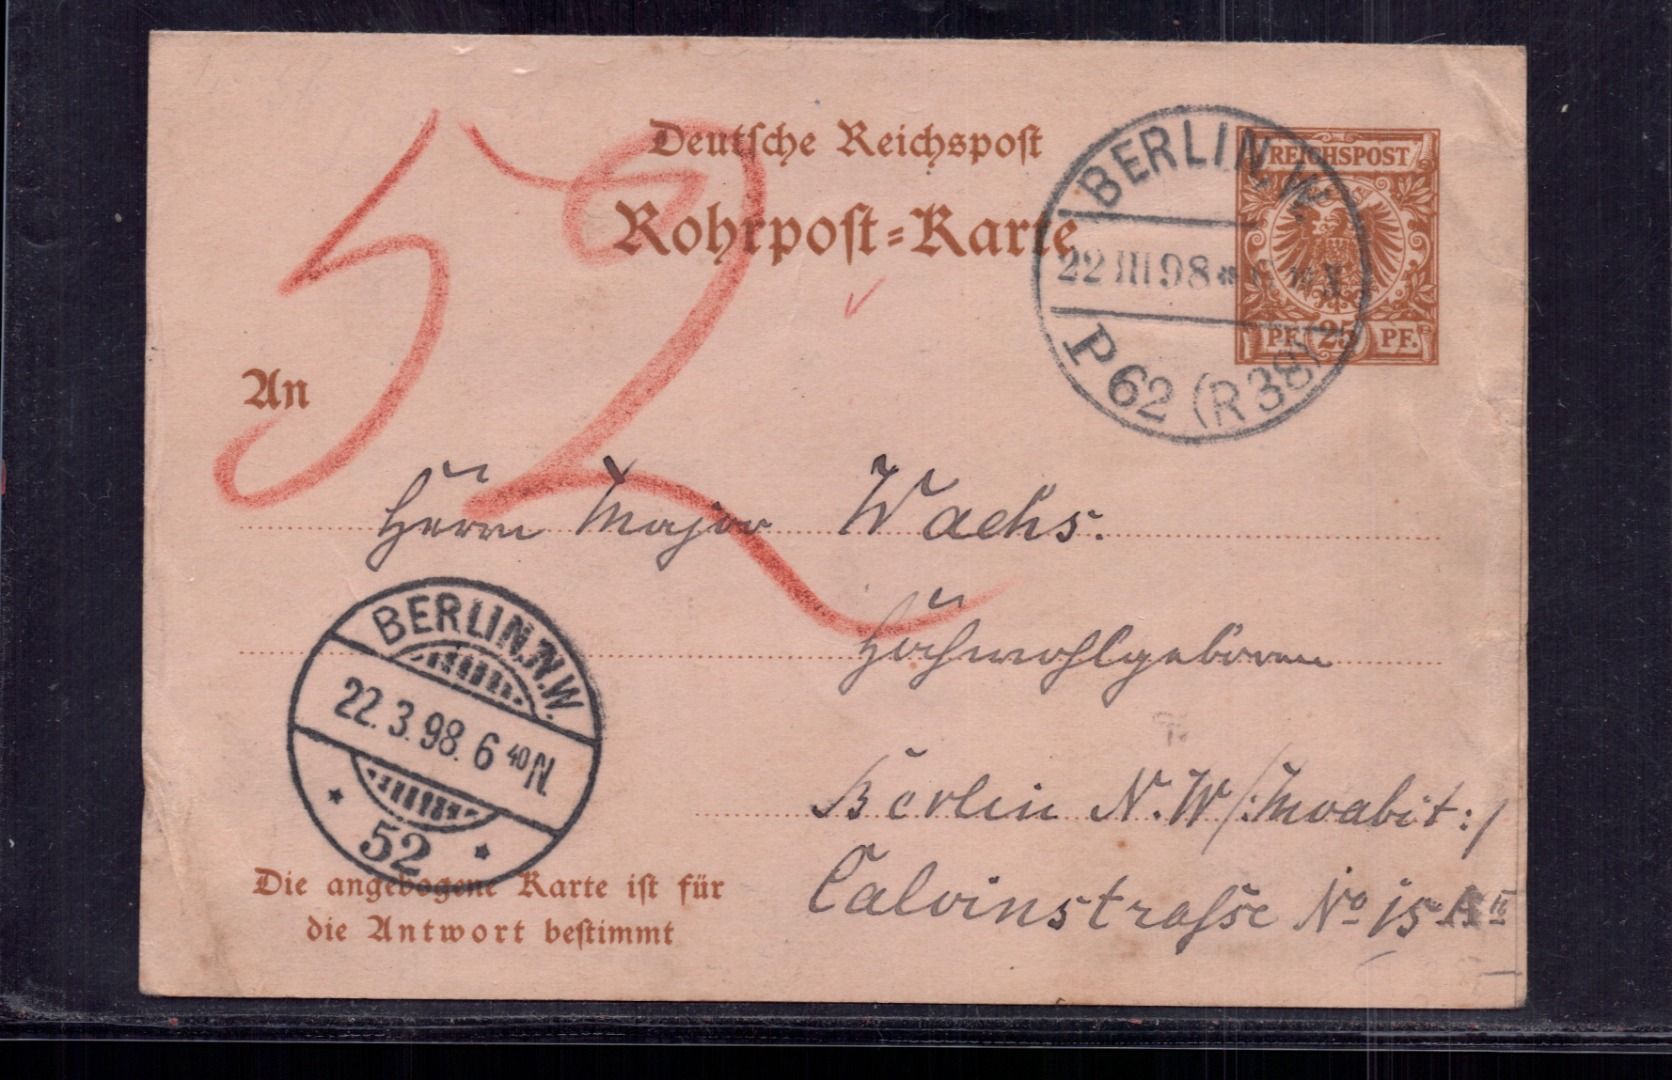 Deutsche Reichspost
Rohrpost-Karte
REICHSPOST
PF. 25 PF.
BERLIN. W.
22 III 98
P 62 (R 38)
52
An
Herrn Major Wachs.
Hochwohlgeboren
BERLIN. N.W.
22. 3. 98. 6 40 N.
52
Berlin N. W /: Moabit :/
Calvinstrasse No 15
Die angebogene Karte ist für
die Antwort bestimmt